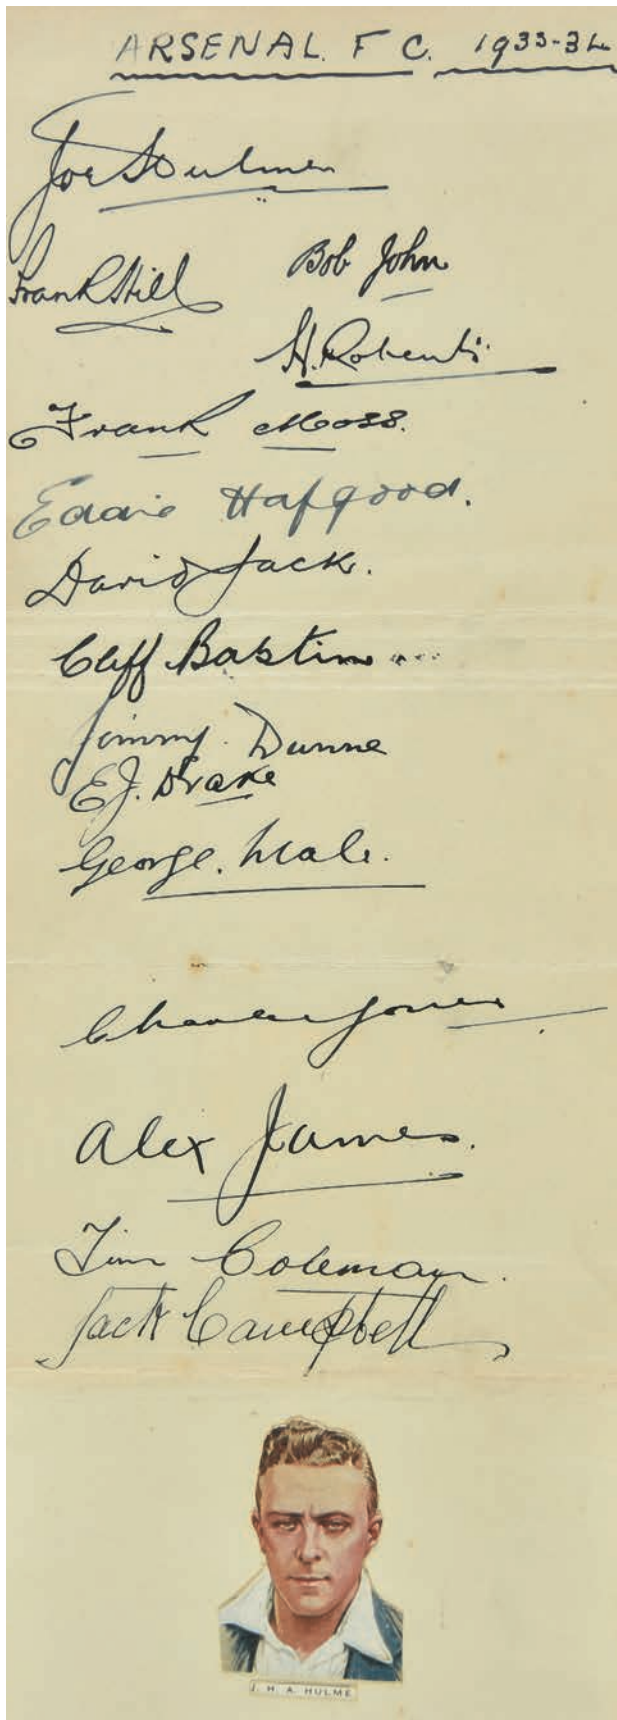 ARSENAL. F C. 1933-34
Joe Hulme
Frank Hill
Bob John
H. Roberts
Frank Moss.
Eddie Hapgood.
David Jack.
Cliff Bastin
Jimmy. Dunne
E.J. Drake
George. Male.
Charlie Jones
Alex James.
Tim Coleman.
Jack Campbell
J. H. A. HULME